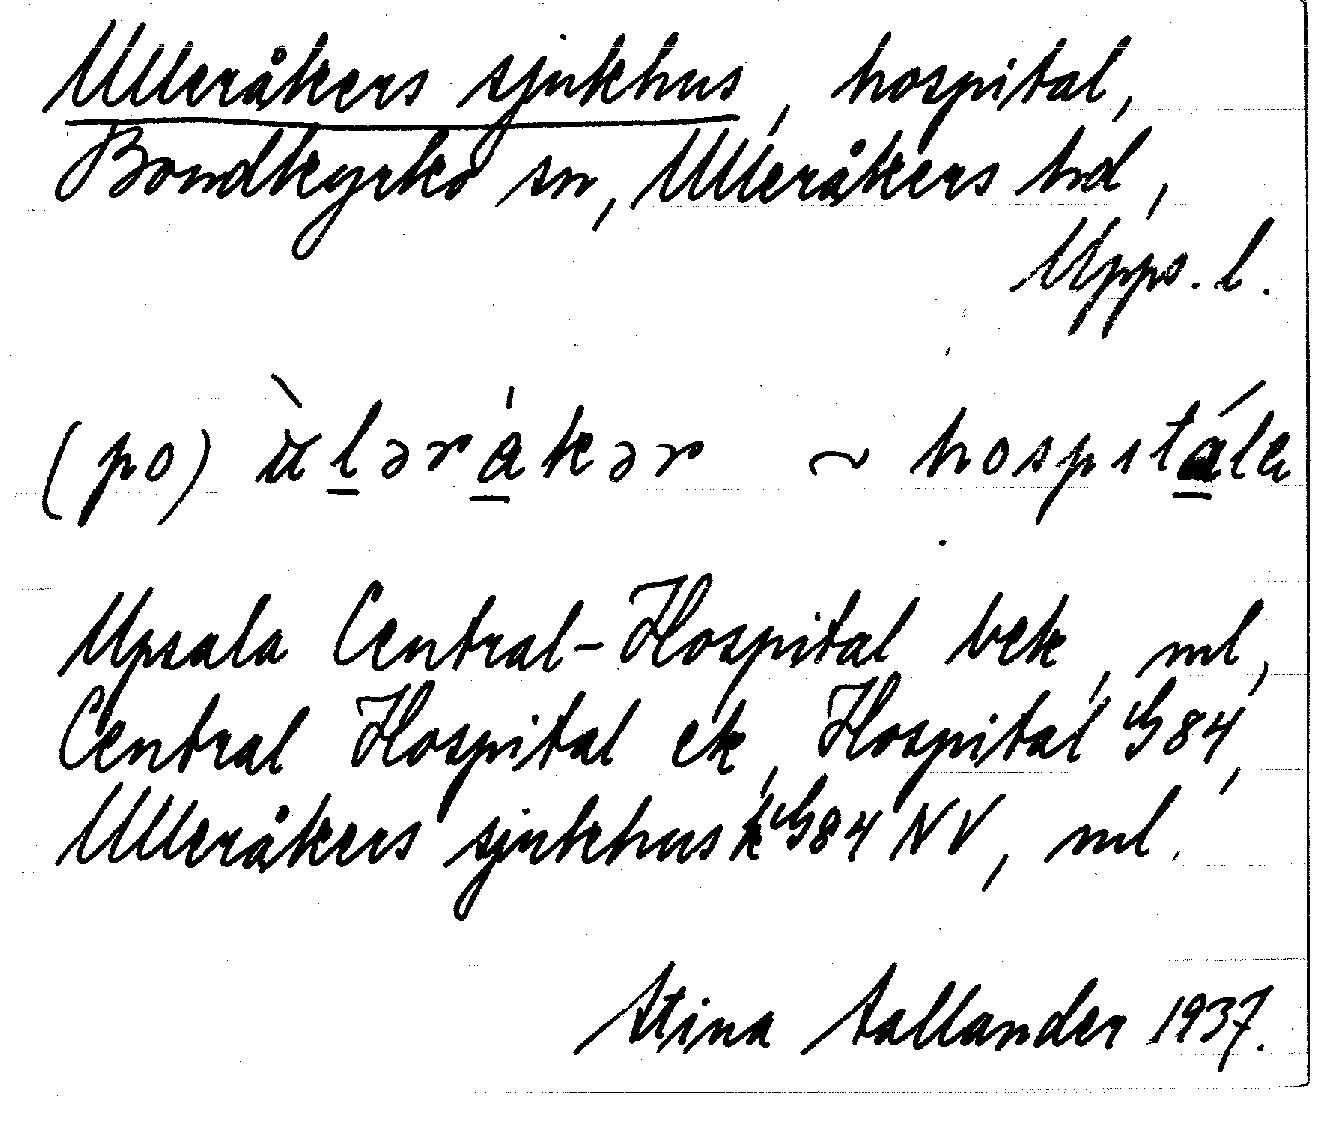 Ulleråkers sjukhus, hospital,
Bondkyrko sn, Ulleråkers hd,
Upps. l.
(po) ùlərákər ~ hospitále
Upsala Central-Hospital bek, ml,
Central Hospital ek, Hospital G84,
Ulleråkers sjukhus k G84 NV, ml.
Stina Sallander 1937.